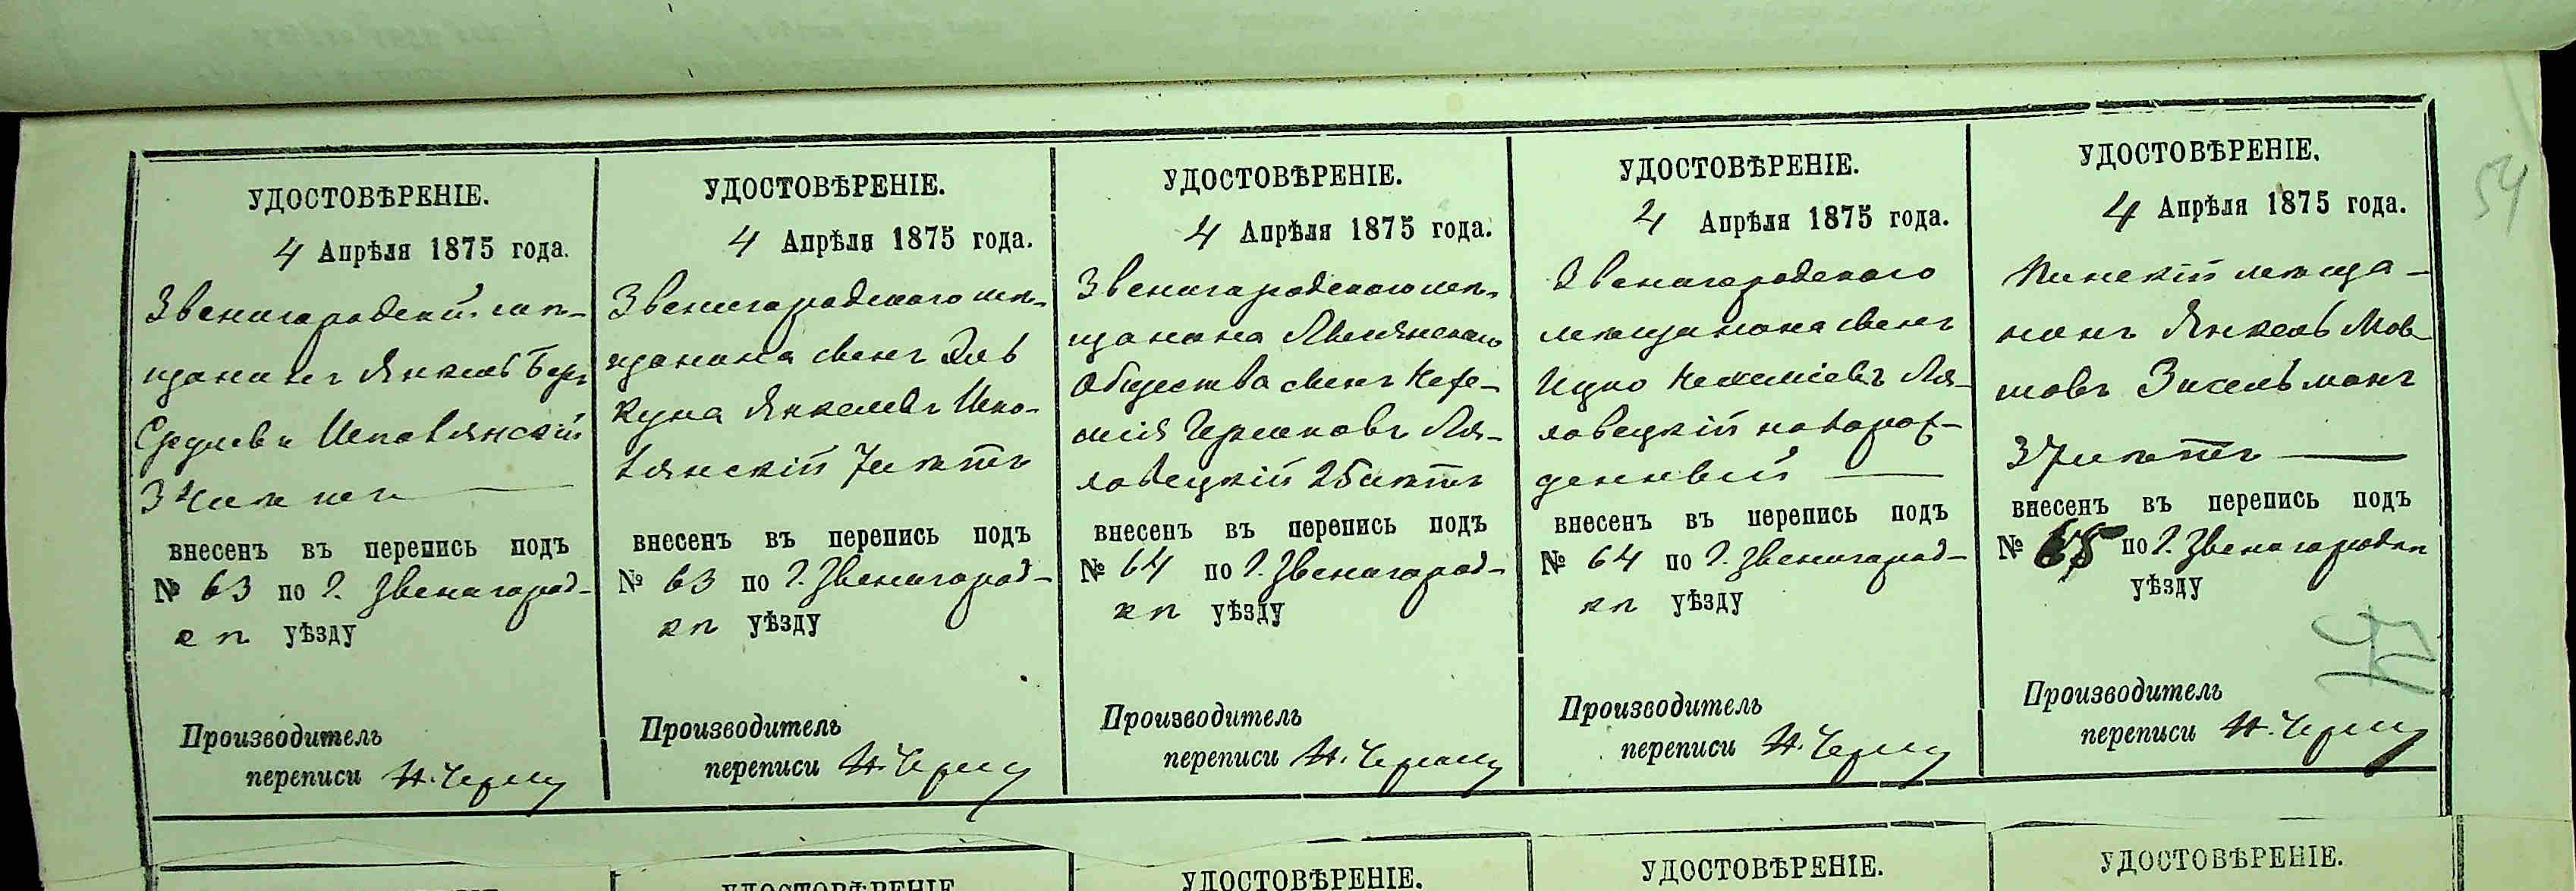 54
УДОСТОВѢРЕНІЕ.
4 Апрѣля 1875 года.
Звенигородскій мѣ-
щанинъ Янкель Бер
Шполянскій
34 лѣтъ
внесенъ въ перепись подъ
№ 63 по г. Звенигород-
кѣ уѣзду
Производитель
переписи
УДОСТОВѢРЕНІЕ.
4 Апрѣля 1875 года.
Звенигородского мѣ-
щанина сынъ Эль
Куна Янкелевъ Шпо-
лянскій 7 лѣтъ
внесенъ въ перепись подъ
№ 63 по г. Звенигород-
кѣ уѣзду
Производитель
переписи
УДОСТОВѢРЕНІЕ.
4 Апрѣля 1875 года.
Звенигородского мѣ-
щанина
Общества сынъ Нехе-
мія Гершковъ Ля-
ховецкій 25 лѣтъ
внесенъ въ перепись подъ
№ 64 по г. Звенигород-
кѣ уѣзду
Производитель
переписи
УДОСТОВѢРЕНІЕ.
4 Апрѣля 1875 года.
Звенигородского
мѣщанина сынъ
Ицко Нехеміевъ Ля-
ховецкій новорож-
денный
внесенъ въ перепись подъ
№ 64 по г. Звенигород-
кѣ уѣзду
Производитель
переписи
УДОСТОВѢРЕНІЕ.
4 Апрѣля 1875 года.
Пинскій мѣща-
нинъ Янкель Мов-
шовъ Зисельманъ
37 лѣтъ
внесенъ въ перепись подъ
№ 65 по г. Звенигородкѣ
уѣзду
Производитель
переписи
УДОСТОВѢРЕНІЕ
УДОСТОВѢРЕНІЕ.
УДОСТОВѢРЕНІЕ.
УДОСТОВѢРЕНІЕ.